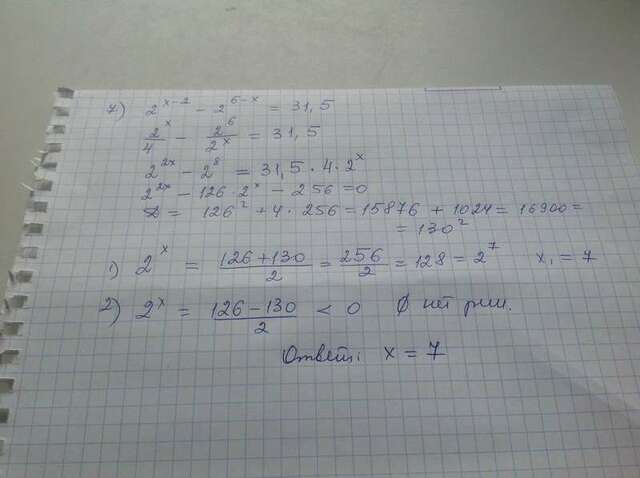 7) 2^(x-2) - 2^(6-x) = 31,5
2^x/4 - 2^6/2^x = 31,5
2^(2x) - 2^8 = 31,5 · 4 · 2^x
2^(2x) - 126 2^x - 256 = 0
D = 126² + 4 · 256 = 15876 + 1024 = 16900 =
= 130²
1) 2^x = (126+130)/2 = 256/2 = 128 = 2^7 x₁ = 7
2) 2^x = (126-130)/2 < 0 ∅ нет реш.
Ответ: x = 7